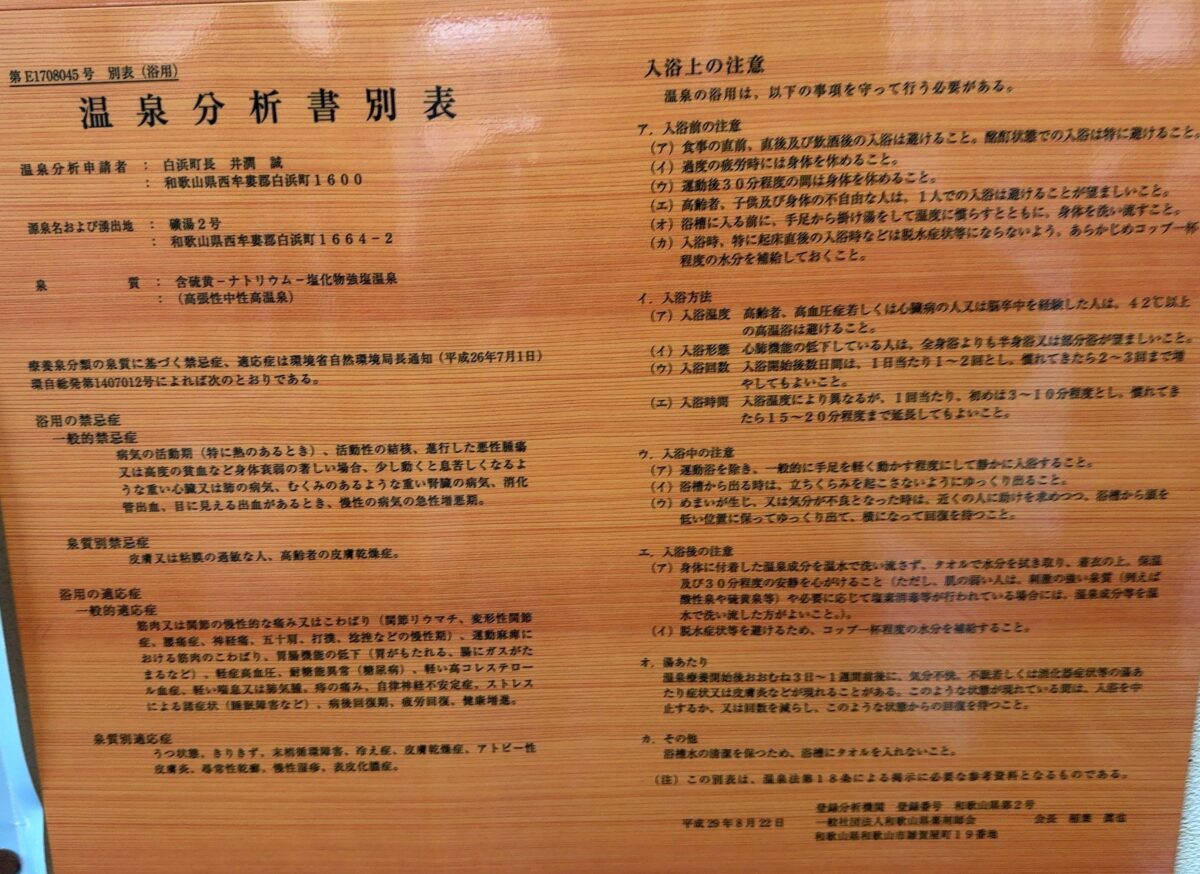 第E1708045号 別表（浴用）
温泉分析書別表
温泉分析申請者 ： 白浜町長 井澗 誠
： 和歌山県西牟婁郡白浜町１６００
源泉名および湧出地 ： 礦湯２号
： 和歌山県西牟婁郡白浜町１６６４－２
泉質 ： 含硫黄－ナトリウム－塩化物強塩温泉
： （高張性中性高温泉）
療養泉分類の泉質に基づく禁忌症、適応症は環境省自然環境局長通知（平成26年7月1日）
環自総発第1407012号によれば次のとおりである。
浴用の禁忌症
一般的禁忌症
病気の活動期（特に熱のあるとき）、活動性の結核、進行した悪性腫瘍
又は高度の貧血など身体衰弱の著しい場合、少し動くと息苦しくなるよ
うな重い心臓又は肺の病気、むくみのあるような重い腎臓の病気、消化
管出血、目に見える出血があるとき、慢性の病気の急性増悪期。
泉質別禁忌症
皮膚又は粘膜の過敏な人、高齢者の皮膚乾燥症。
浴用の適応症
一般的適応症
筋肉又は関節の慢性的な痛み又はこわばり（関節リウマチ、変形性関節
症、腰痛症、神経痛、五十肩、打撲、捻挫などの慢性期）、運動麻痺に
おける筋肉のこわばり、胃腸機能の低下（胃がもたれる、腸にガスがた
まるなど）、軽症高血圧、耐糖能異常（糖尿病）、軽い高コレステロー
ル血症、軽い喘息又は肺気腫、痔の痛み、自律神経不安定症、ストレス
による諸症状（睡眠障害など）、病後回復期、疲労回復、健康増進。
泉質別適応症
うつ状態、きりきず、末梢循環障害、冷え症、皮膚乾燥症、アトピー性
皮膚炎、尋常性乾癬、慢性湿疹、表皮化膿症。
入浴上の注意
温泉の浴用は、以下の事項を守って行う必要がある。
ア．入浴前の注意
（ア）食事の直前、直後及び飲酒後の入浴は避けること。酩酊状態での入浴は特に避けること。
（イ）過度の疲労時には身体を休めること。
（ウ）運動後３０分程度の間は身体を休めること。
（エ）高齢者、子供及び身体の不自由な人は、１人での入浴は避けることが望ましいこと。
（オ）浴槽に入る前に、手足から掛け湯をして温度に慣らすとともに、身体を洗い流すこと。
（カ）入浴時、特に起床直後の入浴時などは脱水症状等にならないよう、あらかじめコップ一杯
程度の水分を補給しておくこと。
イ．入浴方法
（ア）入浴温度 高齢者、高血圧症若しくは心臓病の人又は脳卒中を経験した人は、４２℃以上
の高温浴は避けること。
（イ）入浴形態 心肺機能の低下している人は、全身浴よりも半身浴又は部分浴が望ましいこと。
（ウ）入浴回数 入浴開始後数日間は、１日当たり１～２回とし、慣れてきたら２～３回まで増
やしてもよいこと。
（エ）入浴時間 入浴温度により異なるが、１回当たり、初めは３～１０分程度とし、慣れてき
たら１５～２０分程度まで延長してもよいこと。
ウ．入浴中の注意
（ア）運動浴を除き、一般的に手足を軽く動かす程度にして静かに入浴すること。
（イ）浴槽から出る時は、立ちくらみを起こさないようにゆっくり出ること。
（ウ）めまいが生じ、又は気分が不良となった時は、近くの人に助けを求めつつ、浴槽から頭を
低い位置に保ってゆっくり出て、横になって回復を待つこと。
エ．入浴後の注意
（ア）身体に付着した温泉成分を温水で洗い流さず、タオルで水分を拭き取り、着衣の上、保温
及び３０分程度の安静を心がけること（ただし、肌の弱い人は、刺激の強い泉質（例えば
酸性泉や硫黄泉等）や必要に応じて塩素消毒等が行われている場合には、温泉成分等を温
水で洗い流した方がよいこと。）。
（イ）脱水症状等を避けるため、コップ一杯程度の水分を補給すること。
オ．湯あたり
温泉療養開始後おおむね３日～１週間前後に、気分不快、不眠若しくは消化器症状等の湯あ
たり症状又は皮膚炎などが現れることがある。このような状態が現れている間は、入浴を中
止するか、又は回数を減らし、このような状態からの回復を待つこと。
カ．その他
浴槽水の清潔を保つため、浴槽にタオルを入れないこと。
（注）この別表は、温泉法第１８条による掲示に必要な参考資料となるものである。
登録分析機関 登録番号 和歌山県第２号
平成29年８月２２日 一般社団法人和歌山県薬剤師会 会長 稲葉 眞也
和歌山県和歌山市雑賀屋町１９番地